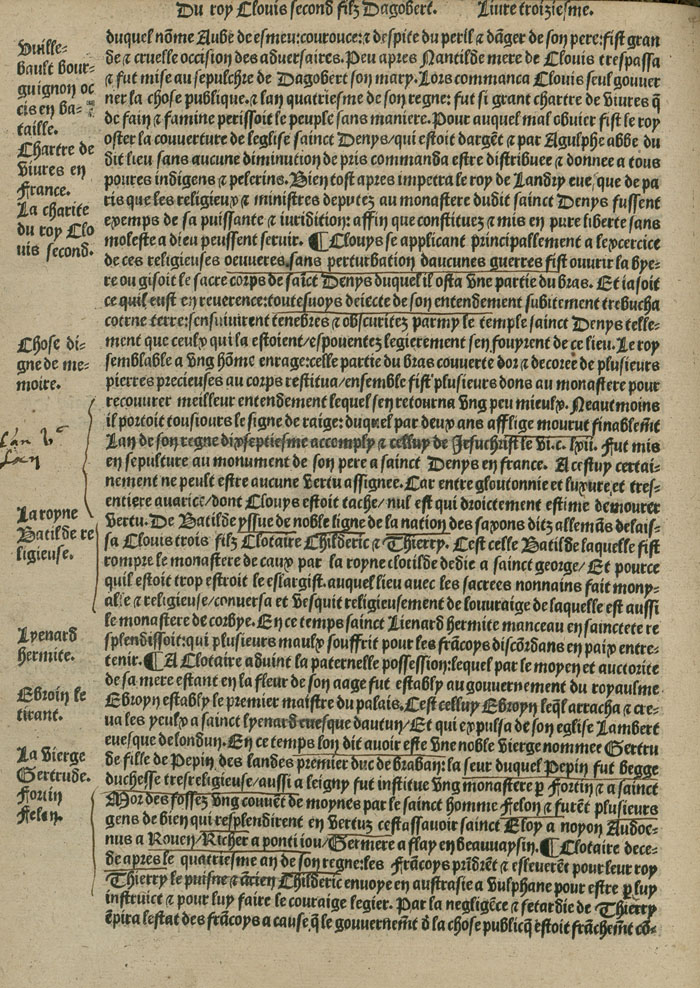 Du roy Clouis second filz Dagobert. Liure troiziesme.
Vuille-
bault bour-
guignon oc
cis en ba-
taille.
Chartre de
viures en
France.
La charite
du roy Clo
uis second.
Chose di-
gne de me-
moire.
Lan
La royne
Batilde re
ligieuse.
Lyenard
hermite.
Ebroin le
tirant.
La vierge
Gertrude.
Fortin
Felon.
duquel nōme Aube de esmeu:courouce:⁊ despite du peril ⁊ dāger de son pere:fist gran
de ⁊ cruelle occision des aduersaires. Peu apres Nantilde mere de Clouis trespassa
⁊ fut mise au sepulchre de Dagobert son mary. Lors commanca Clouis seul gouuer
ner la chose publique.⁊ lan quatriesme de son regne: fut si grant chartre de viures q̄
de fain ⁊ famine perissoit le peuple sans maniere. Pour auquel mal obuier fist le roy
oster la couuerture de leglise sainct Denys/qui estoit dargēt ⁊ par Agulphe abbe du
dit lieu sans aucune diminution de pris commanda estre distribuee ⁊ donnee a tous
poures indigens ⁊ pelerins. Bien tost apres impetra le roy de Landry eue, que de pa
ris que les religieux ⁊ ministres deputez au monastere dudit sainct Denys fussent
exemps de sa puissante ⁊ iuridition: affin que constituez ⁊ mis en pure liberte sans
moleste a dieu peussent seruir. ¶ Clouys se applicant principallement a lexcercice
de ces religieuses oeuueres,sans perturbation daucunes guerres fist ouurir la bye-
re ou gisoit le sacre corps de saīct Denys duquel il osta vne partie du bras. Et ia soit
ce quil eust en reuerence:toutesuoys deiecte de son entendement subitement trebucha
contre terre:sensuiuirent tenebres ⁊ obscuritez parmy le temple sainct Denys telle-
ment que ceulx qui la estoient/espouentez legierement sen fouyrent de ce lieu. Le roy
semblable a vng hōme enrage:celle partie du bras couuerte dor ⁊ decoree de plusieurs
pierres precieuses au corps restitua/ensemble fist plusieurs dons au monastere pour
recouurer meilleur entendement lequel sen retourna vng peu mieulx. Neautmoins
il portoit tousiours le signe de raige: duquel par deux ans afflige mourut finablemēt
Lan de son regne dixseptiesme accomply ⁊ celluy de Jesuchrist le vi.c. lxii. Fut mis
en sepulture au monument de son pere a sainct Denys en france. A cestuy certai-
nement ne peult estre aucune vertu assignee. Car entre gloutonnie et luxure,et tres-
entiere auarice/dont Clouys estoit tache/nul est qui droictement estime demourer
vertu. De Batilde yssue de noble ligne de la nation des saxons ditz allemās delais-
sa Clouis trois filz Clotaire Childeric ⁊ Thierry. Cest celle Batilde laquelle fist
rompre le monastere de caux par la royne clotilde dedie a sainct george/ Et pource
quil estoit trop estroit le eslargist.auquel lieu auec les sacrees nonnains fait mony-
alle ⁊ religieuse/conuersa et vesquit religieusement de louuraige de laquelle est aussi
le monastere de corbye. En ce temps sainct Lienard hermite manceau en sainctete re
splendissoit:qui plusieurs maulx souffrit pour les frācoys discōrdans en paix entre-
tenir.¶ A Clotaire aduint la paternelle possession:lequel par le moyen et auctorite
de sa mere estant en la fleur de son aage fut estably au gouuernement du royaulme
Ebroyn estably le premier maistre du palais. Cest celluy Ebroyn leq̄l arracha ⁊ cre-
ua les yeulx a sainct lyenard euesque dautun/ Et qui expulsa de son eglise Lambert
euesque de londun. En ce temps lon dit auoir este vne noble vierge nommee Gertru
de fille de Pepin des landes premier duc de braban: la seur duquel Pepin fut begge
duchesse tresreligieuse/aussi a leigny fut institue vng monastere p̱ Fortin ⁊ a sainct
Mor des fossez vng couuēt de moynes par le sainct homme Felon ⁊ furēt plusieurs
gens de bien qui resplendirent en vertuz cestassauoir sainct Eloy a noyon Audoe-
nus a Rouen/Richer a ponti iou/Germere a flay en beauuaysin. ¶ Clotaire dece-
de apres le quatriesme an de son regne:les Francoys prīdrēt ⁊ esleuerēt pour leur roy
Thierry le puisne ⁊ ācien Childeric enuoye en austrasie a Vulphane pour estre p̱ luy
instruict ⁊ pour luy faire le couraige legier. Par la negligēce ⁊ fetardie de Thierry
ēpira lestat des frācoys a cause q̄ le gouuernemēt d̄ la chose publicq̄ estoit frāchemēt cō-